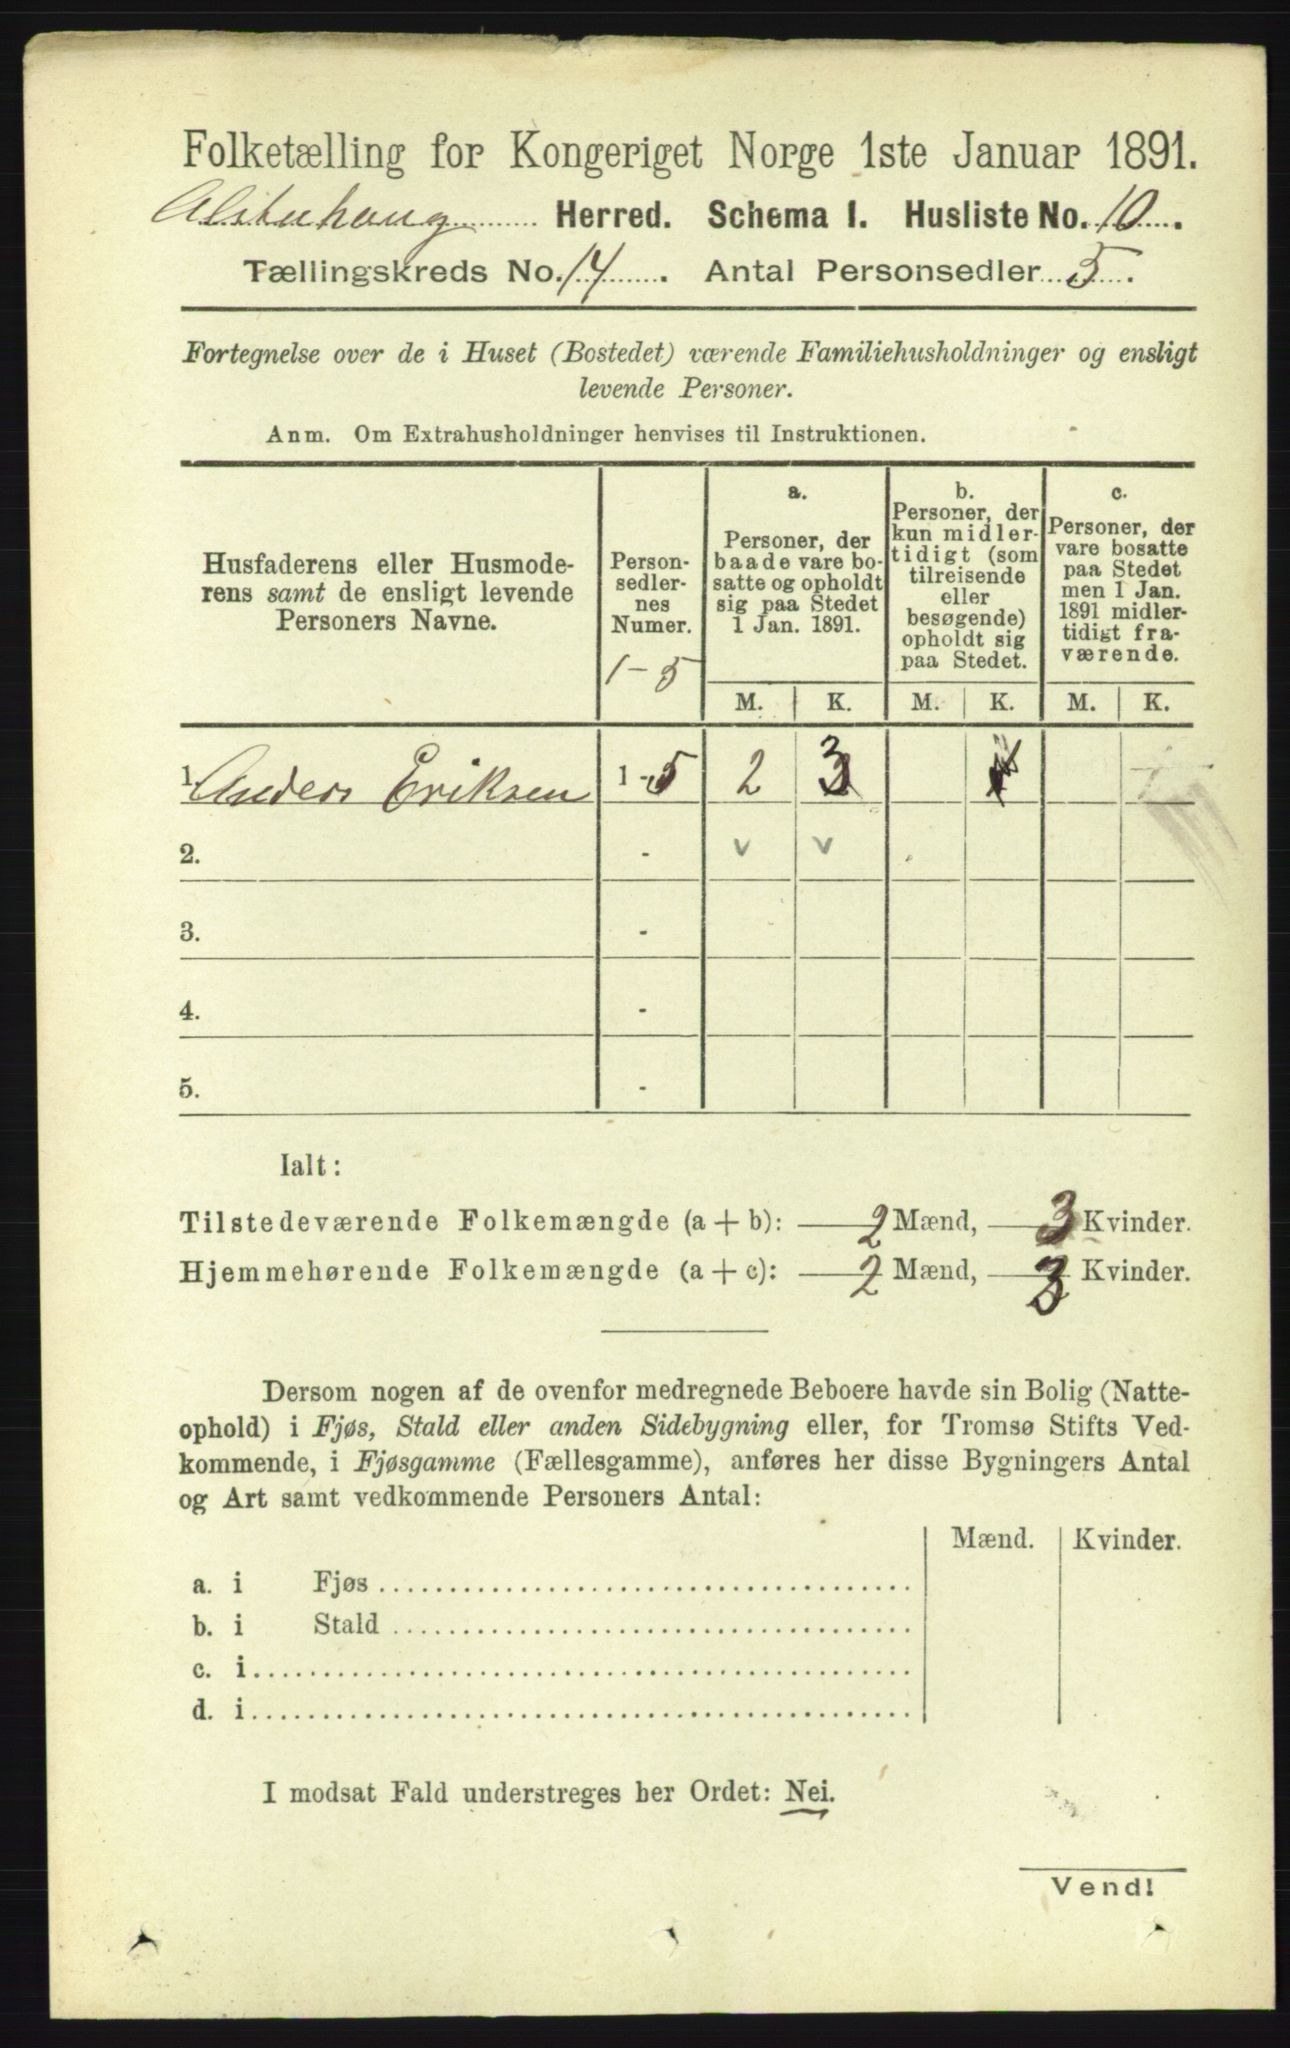 Folketælling for Kongeriget Norge 1ste Januar 1891.
Alstahaug Herred. Schema 1. Husliste No. 10.
Tællingskreds No. 14. Antal Personsedler 5.
Fortegnelse over de i Huset (Bostedet) værende Familiehusholdninger og ensligt
levende Personer.
Anm. Om Extrahusholdninger henvises til Instruktionen.
Husfaderens eller Husmode-
rens samt de ensligt levende
Personers Navne.
Person-
sedler-
nes
Numer.
1-5
a.
Personer, der
baade vare bo-
satte og opholdt
sig paa Stedet
1 Jan. 1891.
b.
Personer, der
kun midler-
tidigt (som
tilreisende
eller
besøgende)
opholdt sig
paa Stedet.
c.
Personer, der
vare bosatte
paa Stedet
men 1 Jan.
1891 midler-
tidigt fra-
værende.
M. K. M. K. M. K.
1. Anders Eriksen 1-5 2 3
2. - v v
3. -
4. -
5. -
Ialt:
Tilstedeværende Folkemængde (a + b): 2 Mænd, 3 Kvinder.
Hjemmehørende Folkemængde (a + c): 2 Mænd, 3 Kvinder.
Dersom nogen af de ovenfor medregnede Beboere havde sin Bolig (Natte-
ophold) i Fjøs, Stald eller anden Sidebygning eller, for Tromsø Stifts Ved-
kommende, i Fjøsgamme (Fællesgamme), anføres her disse Bygningers Antal
og Art samt vedkommende Personers Antal:
Mænd. Kvinder.
a. i Fjøs
b. i Stald
c. i
d. i
I modsat Fald understreges her Ordet: Nei.
Vend!